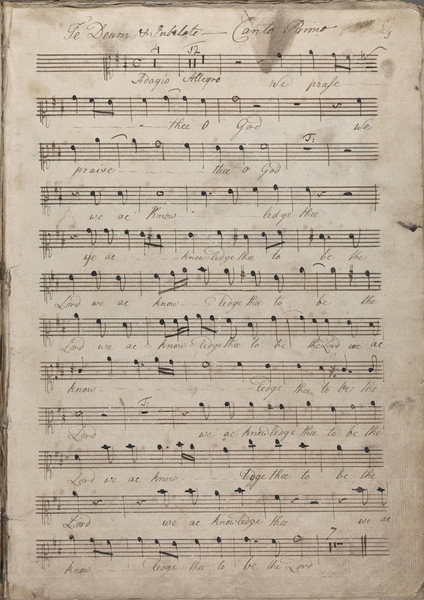 Te Deum & Jubilate — Canto Primo
4 12
Adagio Allegro We praise
thee O God we
praise thee O God
we ac know ledge thee
we ac know ledge thee to be the
Lord we ac know ledge thee to be the
Lord we ac know ledge thee to be the Lord we ac
know ledge thee to be the
Lord we ac knowledge thee to be the
Lord we ac know ledge thee to be the
Lord we ac knowledge thee we ac
7
know ledge thee to be the Lord